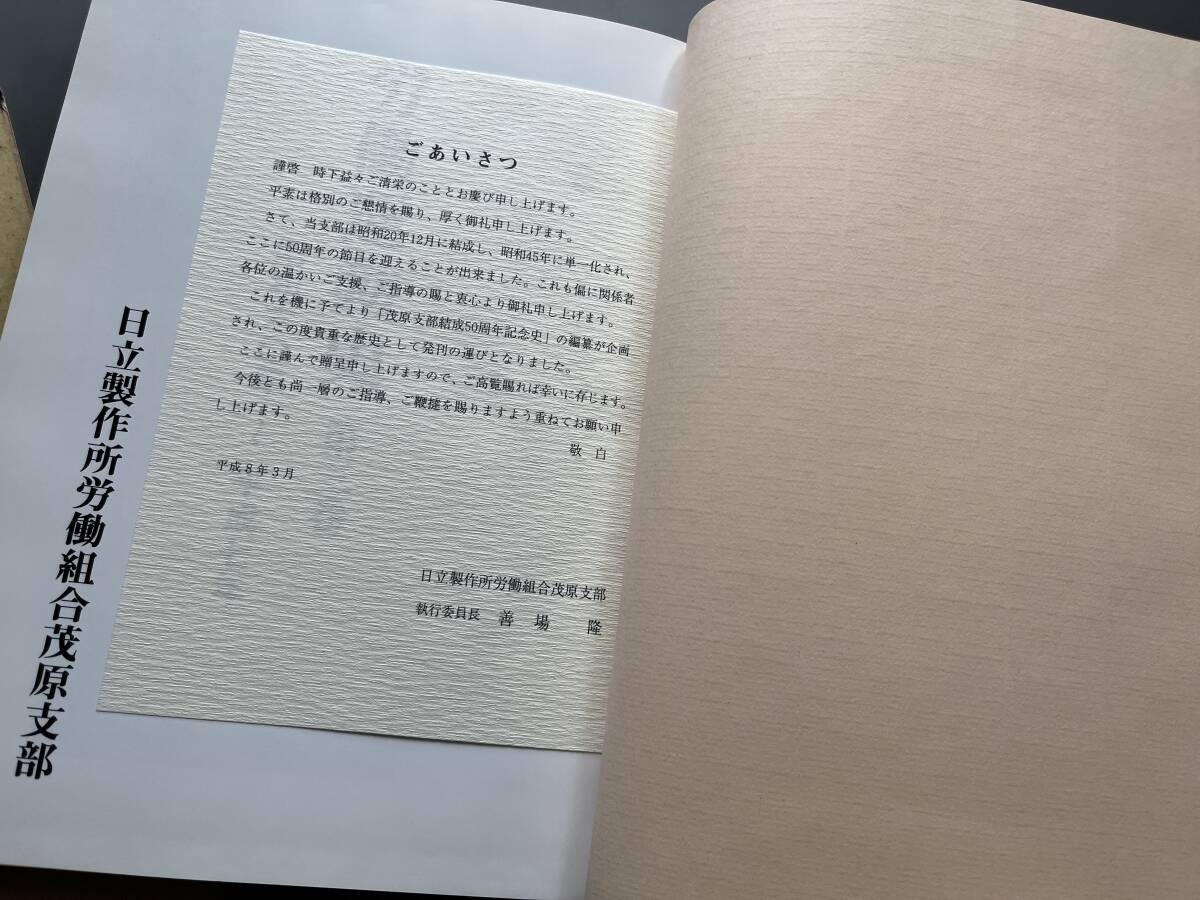 日立製作所労働組合茂原支部
ごあいさつ
謹啓 時下益々ご清栄のこととお慶び申し上げます。
平素は格別のご懇情を賜り、厚く御礼申し上げます。
さて、当支部は昭和20年12月に結成し、昭和45年に単一化され、
ここに50周年の節目を迎えることが出来ました。これも偏に関係者
各位の温かいご支援、ご指導の賜と衷心より御礼申し上げます。
これを機に予てより「茂原支部結成50周年記念史」の編纂が企画
され、この度貴重な歴史として発刊の運びとなりました。
ここに謹んで贈呈申し上げますので、ご高覧賜れば幸いに存じます。
今後とも尚一層のご指導、ご鞭撻を賜りますよう重ねてお願い申
し上げます。
敬 白
平成8年3月
日立製作所労働組合茂原支部
執行委員長 善場 隆